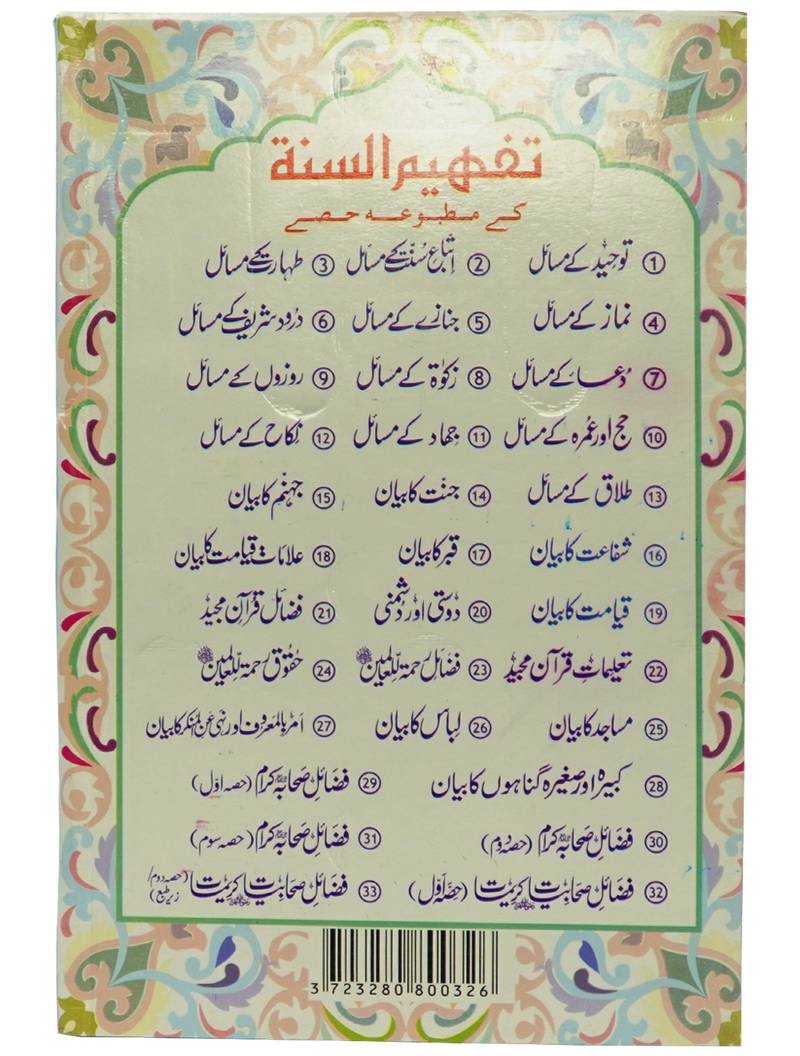 تفہیم السنۃ
کے مطبوعہ حصے
① توحید کے مسائل ② اتباع سُنت کے مسائل ③ طہارت کے مسائل
④ نماز کے مسائل ⑤ جنازے کے مسائل ⑥ درود شریف کے مسائل
⑦ دُعا کے مسائل ⑧ زکوٰۃ کے مسائل ⑨ روزوں کے مسائل
⑩ حج اور عُمرہ کے مسائل ⑪ جہاد کے مسائل ⑫ نکاح کے مسائل
⑬ طلاق کے مسائل ⑭ جنت کا بیان ⑮ جہنم کا بیان
⑯ شفاعت کا بیان ⑰ قبر کا بیان ⑱ علامات قیامت کا بیان
⑲ قیامت کا بیان ⑳ دوستی اور دُشمنی ㉑ فضائل قرآن مجید
㉒ تعلیمات قرآن مجید ㉓ فضائل رحمۃ للعالمین ﷺ ㉔ حقوق رحمۃ للعالمین ﷺ
㉕ مساجد کا بیان ㉖ لباس کا بیان ㉗ امر بالمعروف اور نہی عن المنکر کا بیان
㉘ کبیرہ اور صغیرہ گناہوں کا بیان ㉙ فضائل صحابہ کرام (حصہ اول)
㉚ فضائل صحابہ کرام (حصہ دوم) ㉛ فضائل صحابہ کرام (حصہ سوم)
㉜ فضائل صحابیات کریمات (حصہ اوّل) ㉝ فضائل صحابیات کریمات (حصہ دوم/زیر طبع)
3 723280 800326